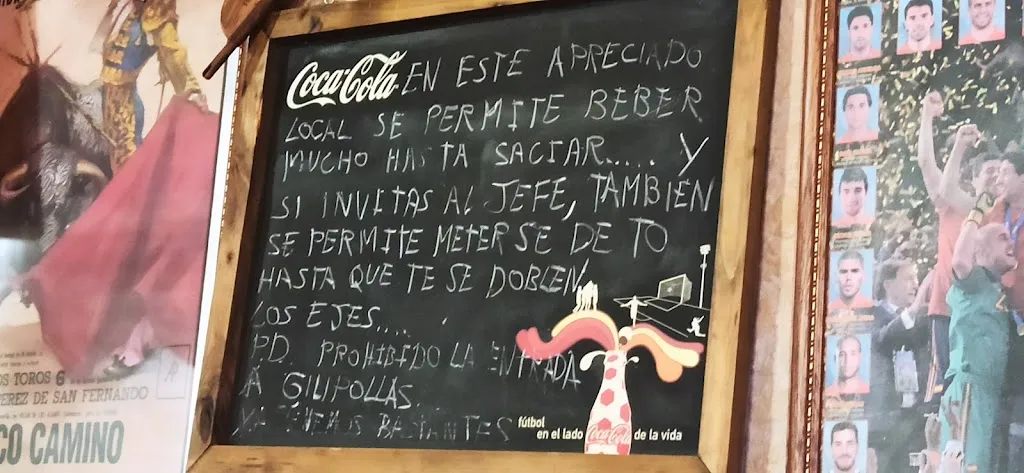 Coca-Cola EN ESTE APRECIADO
LOCAL SE PERMITE BEBER
MUCHO HASTA SACIAR..... Y
SI INVITAS AL JEFE, TAMBIÉN
SE PERMITE METERSE DE TO
HASTA QUE TE SE DOBLEN
LOS EJES....
P.D. PROHIBIDO LA ENTRADA
A GILIPOLLAS.
YA TENEMOS BASTANTES
fútbol
en el lado Coca-Cola de la vida
OS TOROS 6
PEREZ DE SAN FERNANDO
CO CAMINO